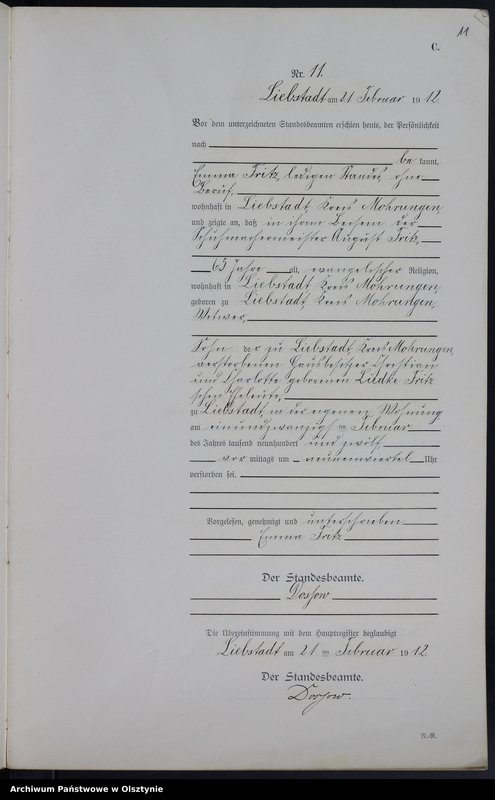 11
C.
Nr. 11.
Liebstadt am 21 Februar 1912.
Vor dem unterzeichneten Standesbeamten erschien heute, der Persönlichkeit
nach
be kannt,
Emma Fritz, ledigen Standes, ohne
Beruf,
wohnhaft in Liebstadt Kreis Mohrungen,
und zeigte an, daß in ihrem Beisein der
Schuhmachermeister August Fritz,
65 Jahre alt, evangelischer Religion,
wohnhaft in Liebstadt Kreis Mohrungen,
geboren zu Liebstadt, Kreis Mohrungen,
Witwer,
Sohn der zu Liebstadt, Kreis Mohrungen,
verstorbenen Hausbesitzer Christian
und Charlotte geborenen Liedke Fritz
schen Eheleute,
zu Liebstadt, in der eigenen Wohnung
am einundzwanzigsten Februar
des Jahres tausend neunhundert und zwölf
vor mittags um neuneinviertel Uhr
verstorben sei.
Vorgelesen, genehmigt und unterschrieben
Emma Fritz
Der Standesbeamte.
Die Übereinstimmung mit dem Hauptregister beglaubigt
Liebstadt am 21 ten Februar 1912.
Der Standesbeamte.
N.-R.
Archiwum Państwowe w Olsztynie